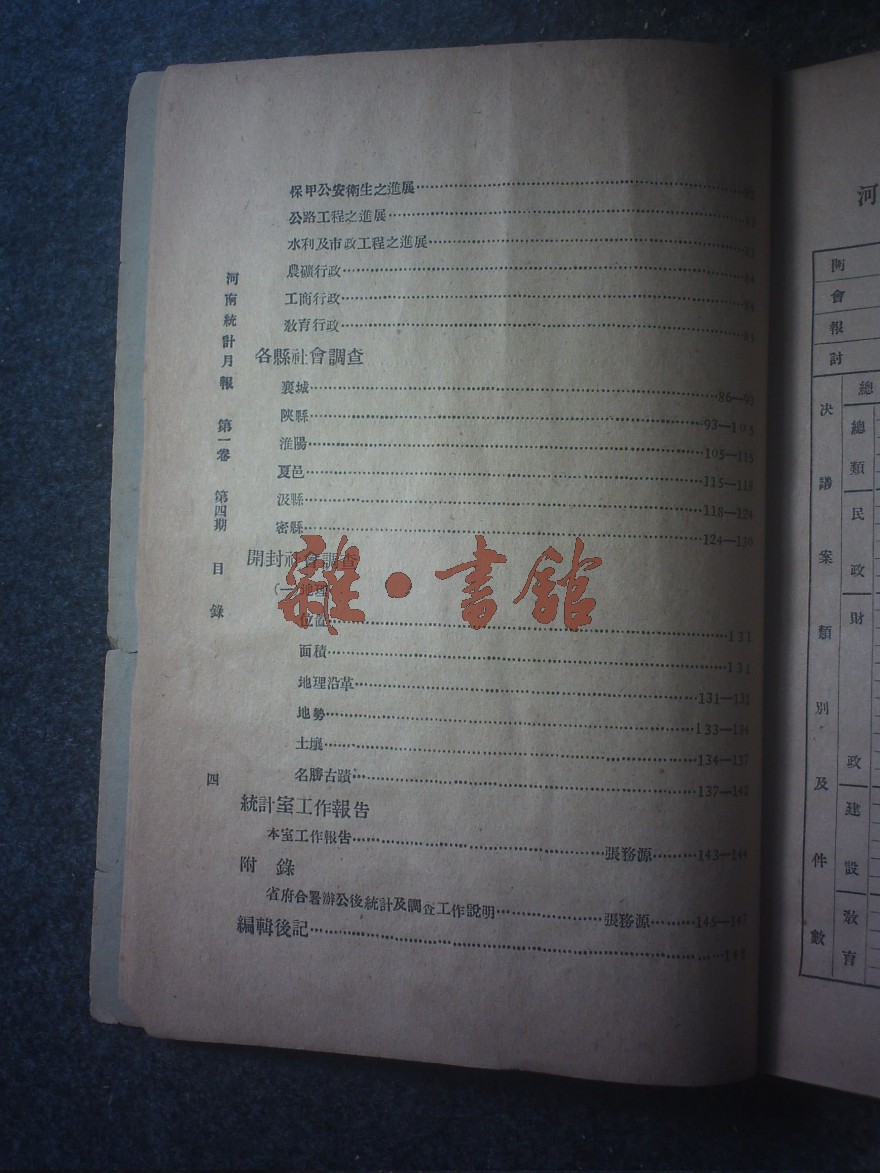 保甲公安衛生之進展
公路工程之進展
水利及市政工程之進展
農礦行政
工商行政
敎育行政
各縣社會調查
襄城 86—93
陝縣 93—105
淮陽 105—115
夏邑 115—118
汲縣 118—124
密縣 124—130
開封社會調查
(一)地理
位置 131
面積 131
地理沿革 131—131
地勢 133—134
土壤 134—137
名勝古蹟 137—142
統計室工作報告
本室工作報告 張務源 143—144
附 錄
省府合署辦公後統計及調查工作說明 張務源 145—147
編輯後記 148
河南統計月報 第一卷 第四期 目錄 四
雜·書館
河
開會報討
決議案類別及件數
總
總類
民政
財政
建設
敎育